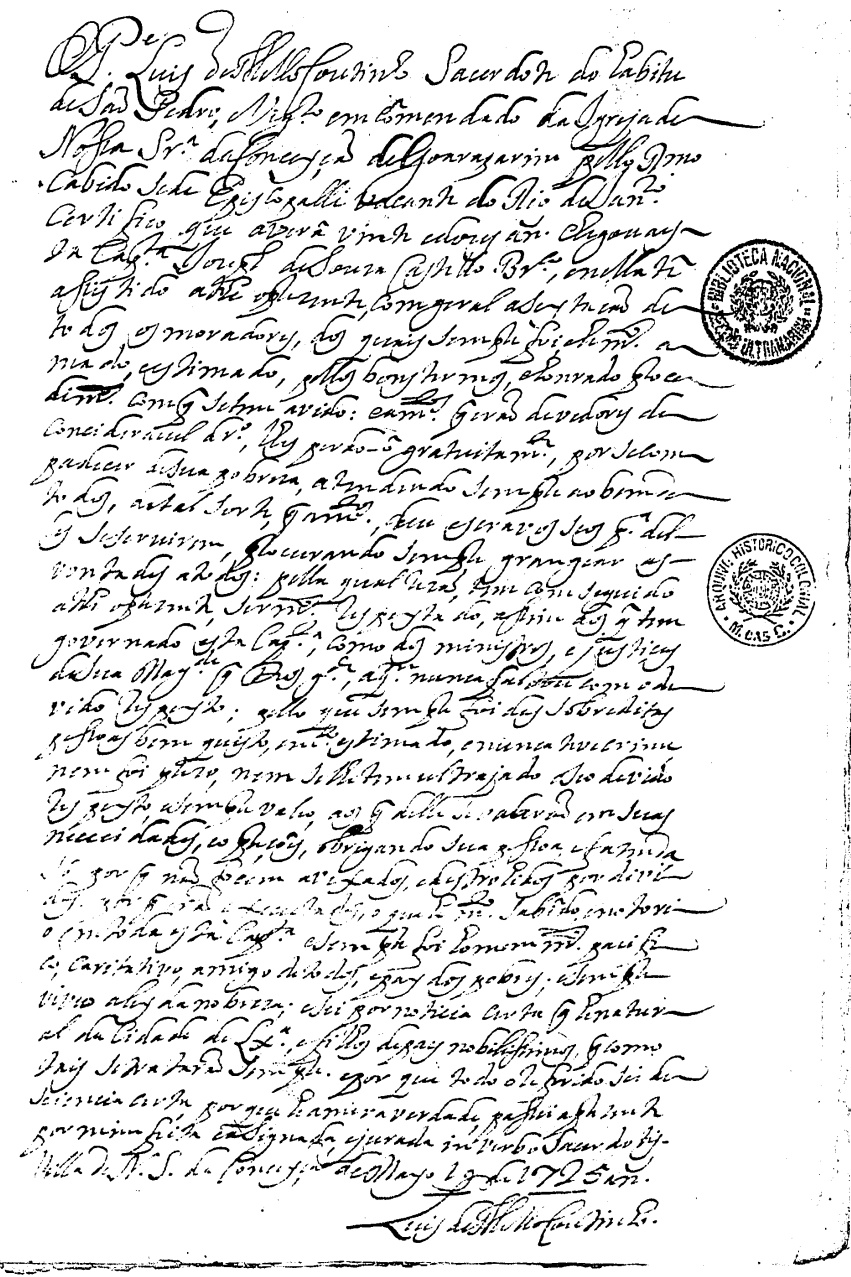 O P.e Luis de Mello Coutinho Sacerdote do habito
de São Pedro, Vigr.o emcõmendado da Igreja de
Nossa Sr.a da Conceyçaõ de Goarapari pello Rmo
Cabido Sede Episcopalli vacante do Rio de Jan.ro
Certifico que averá vinte e dores an. chegou a es-
ta Cap.ta Joseph de Souza Castelho Br.co, e nella tẽ
asistido athe o prezente, com geral aseytacaõ de
todos os moradores, dos quais sempre foi m.to a
mado, e estimado, pellos bons termos, e honrado proce
dim.to com q setem avido: e a m.tos q eraõ devedores de
concideravel dr.o, lhes perdoõ gratuitam.te, por secom
padecer de sua pobreza, atendendo sempre ao bem de
todos, de tal sorte, q a m.tos, deu escravos seos p.a del-
les se servirem, procurando sempre grangear as
vontades a todos: pella qual rezaõ, tem comseguido
athe o prezente, ser m.to respeytado, assim dos q tem
governado esta Cap.ta, como dos ministros, e justiças
de sua Mag.de q Deos g.de, a q.m nunca faltou com o de
vido respeyto; pello que sempre foi das sobreditas
pessoas bem quisto, e m.to estimado, e nunca teve crime
nem foi prezo, nem selhe tem ultrajado aseo devido
respeyto, e sempre valeo, aos q delle se valeraõ em suas
necceidades, e opreçoẽs, obrigando sua pessoa e fazenda
por q naõ focem avexados, e destrohidos por divi
das q eraõ executados, o que he m.to sabido e notori
o em toda esta Cap.ta e sempre foi homem m.to pacifi
co, caritativo, amigo de todos, e pay dos pobres; e sempre
viveo aley da nobreza; e sei por noticia certa q he natur
al da Cidade de Lx.a, e filho de pays nobilissimos, q como
tais setrataraõ sempre. e por que todo o referido sei de
sciencia certa, por que he a mera verdade passei a prezente
por mim feita e asignada, e jurada in verbo Sacerdotis.
Villa de N. S. da Conceyç.am de Mayo 19 de 1725 an.
Luis de Mello Coutinho.
BIBLIOTECA NACIONAL
SECÇÃO ULTRAMARINA
ARQUIVO HISTORICO COLONIAL
M. DAS C.